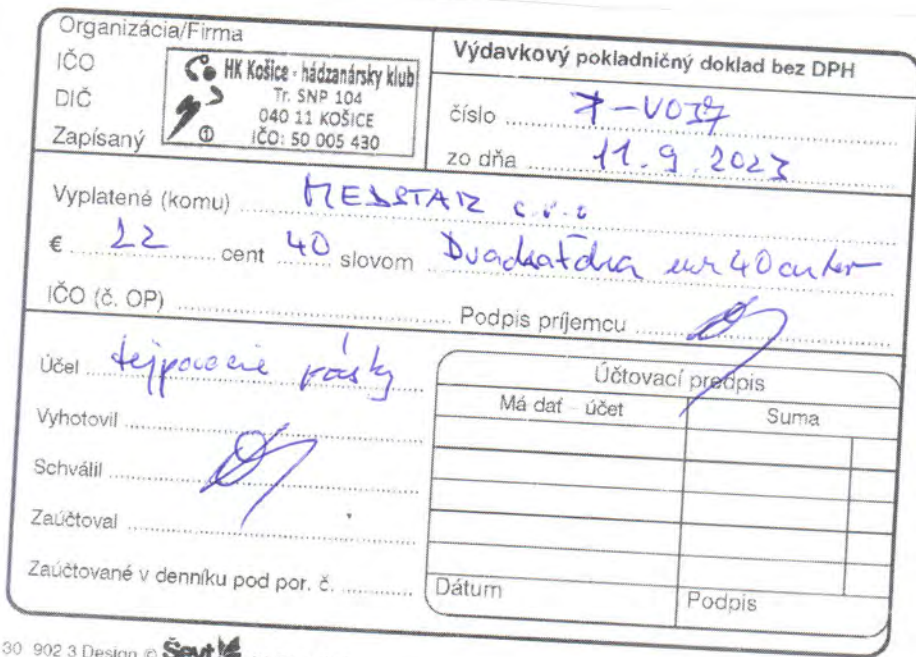 Organizácia/Firma
IČO
DIČ
Zapísaný
HK Košice - hádzanársky klub
Tr. SNP 104
040 11 KOŠICE
IČO: 50 005 430
1
Výdavkový pokladničný doklad bez DPH
číslo
zo dňa 11. 9. 2023
Vyplatené (komu) MEDSTAR s.r.o
€ 22 cent 40 slovom Dvadsaťdva eur 40 centov
IČO (č. OP) Podpis príjemcu
Účel tejpovacie pásky
Vyhotovil
Schválil
Zaúčtoval
Zaúčtované v denníku pod por. č.
Účtovací predpis
Má dať - účet Suma
Dátum Podpis
30 902 3 Design © Ševt